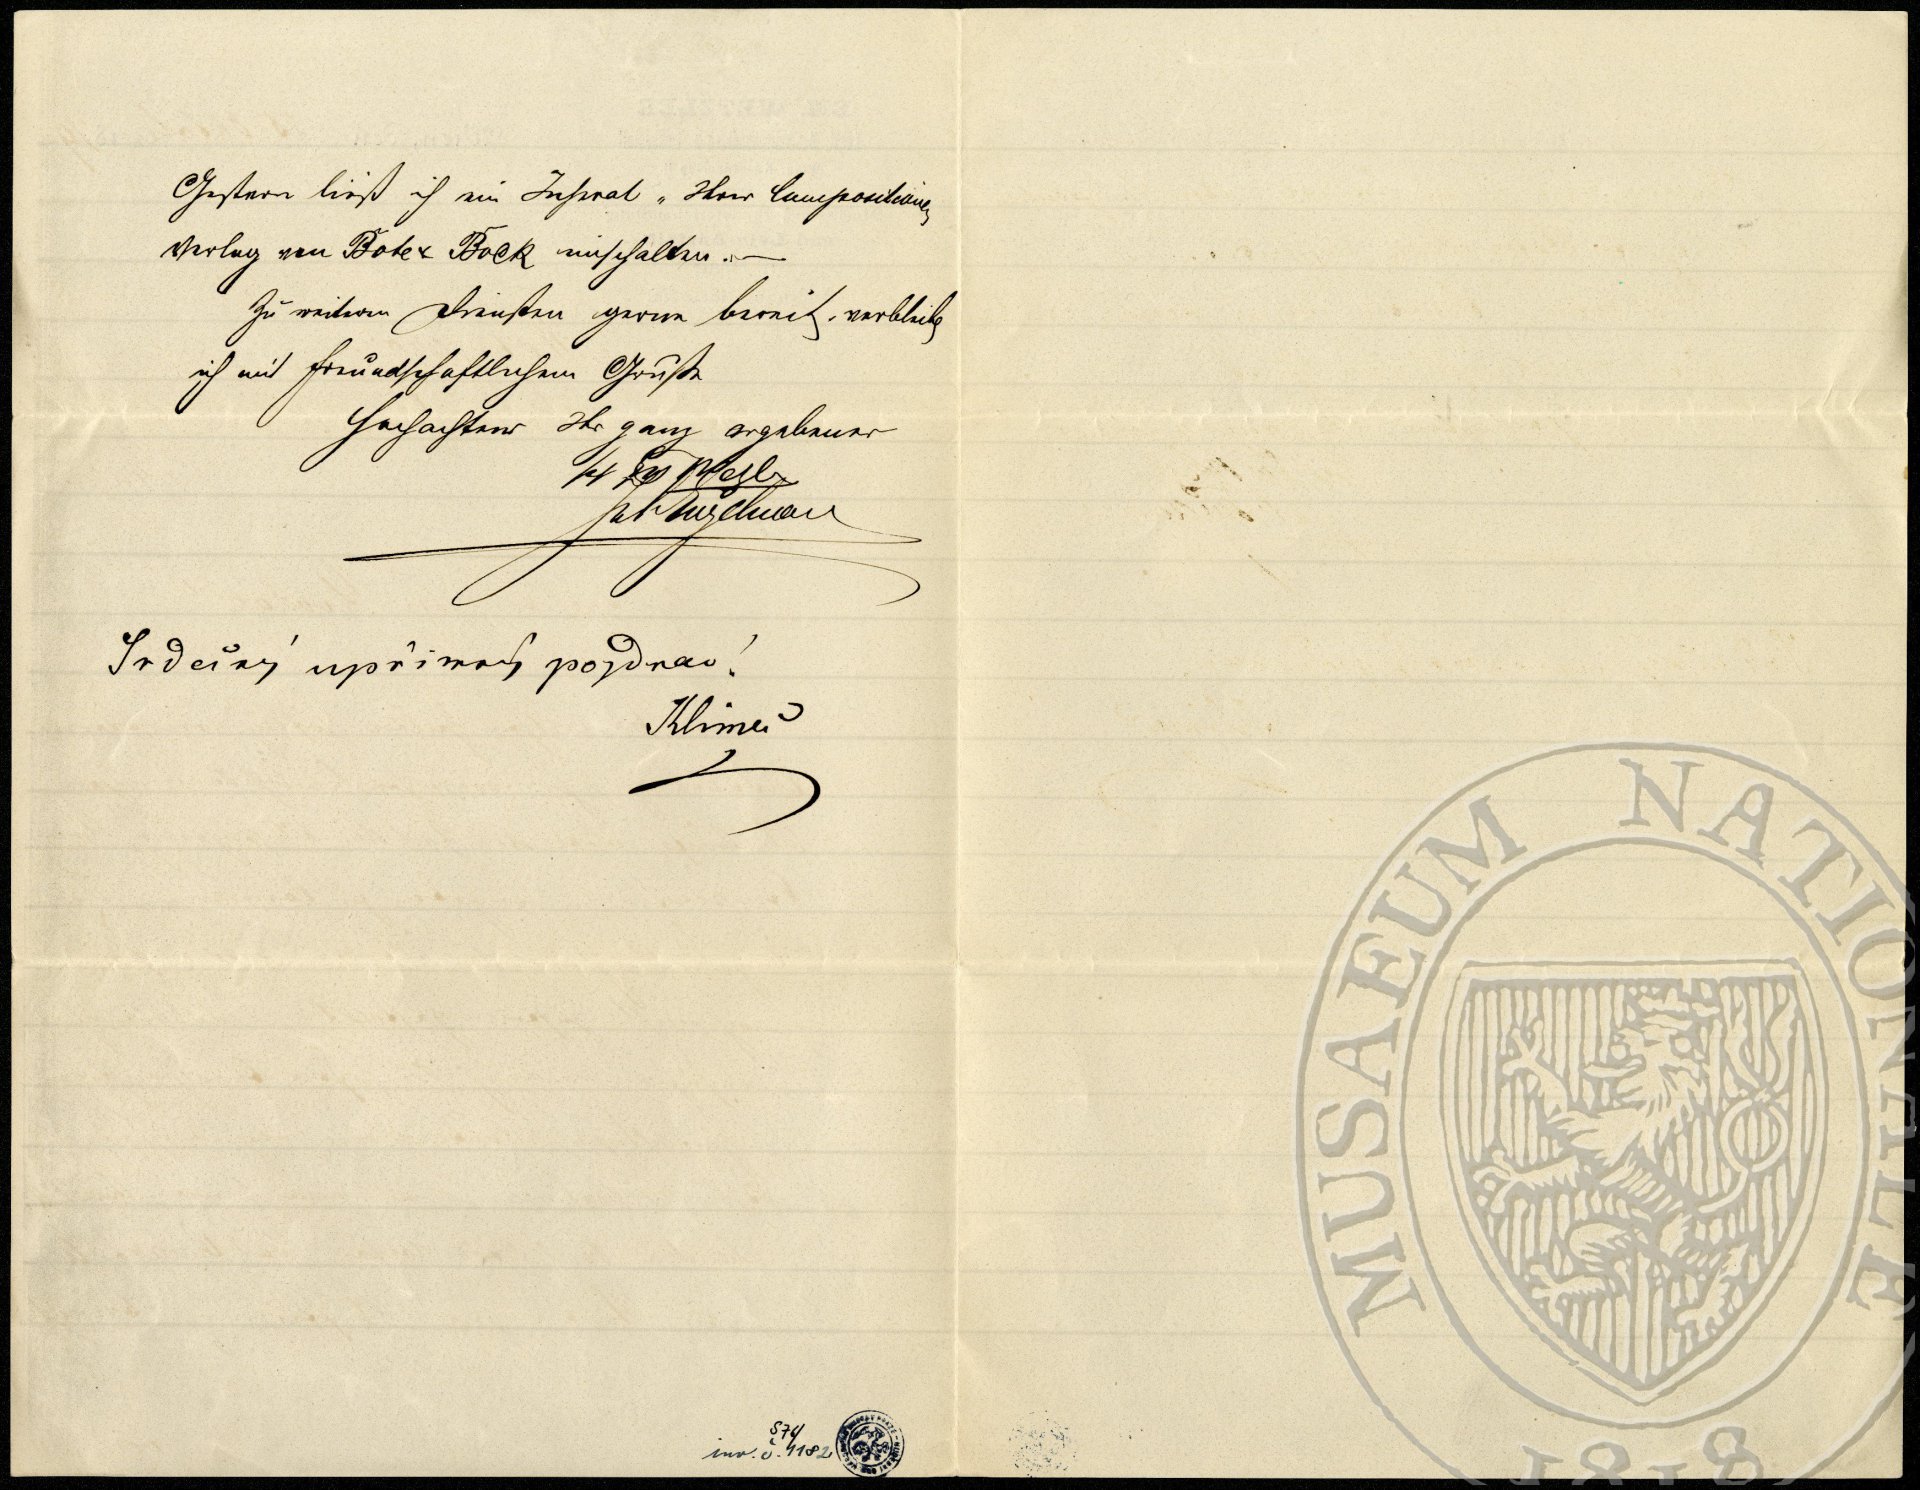 Gestern ließ ich ein Inserat „ Ihrer Compositionen
Verlag von Bote & Bock einschalten. —
Zu weiteren Diensten gerne bereit, verbleibe
ich mit freundschaftlichem Gruße
Ihr ganz ergebener
Srdečný upřímný pozdrav!
Klimeš
S 74/
inv. č. 1182
MUSAEUM NATIONALE
1818